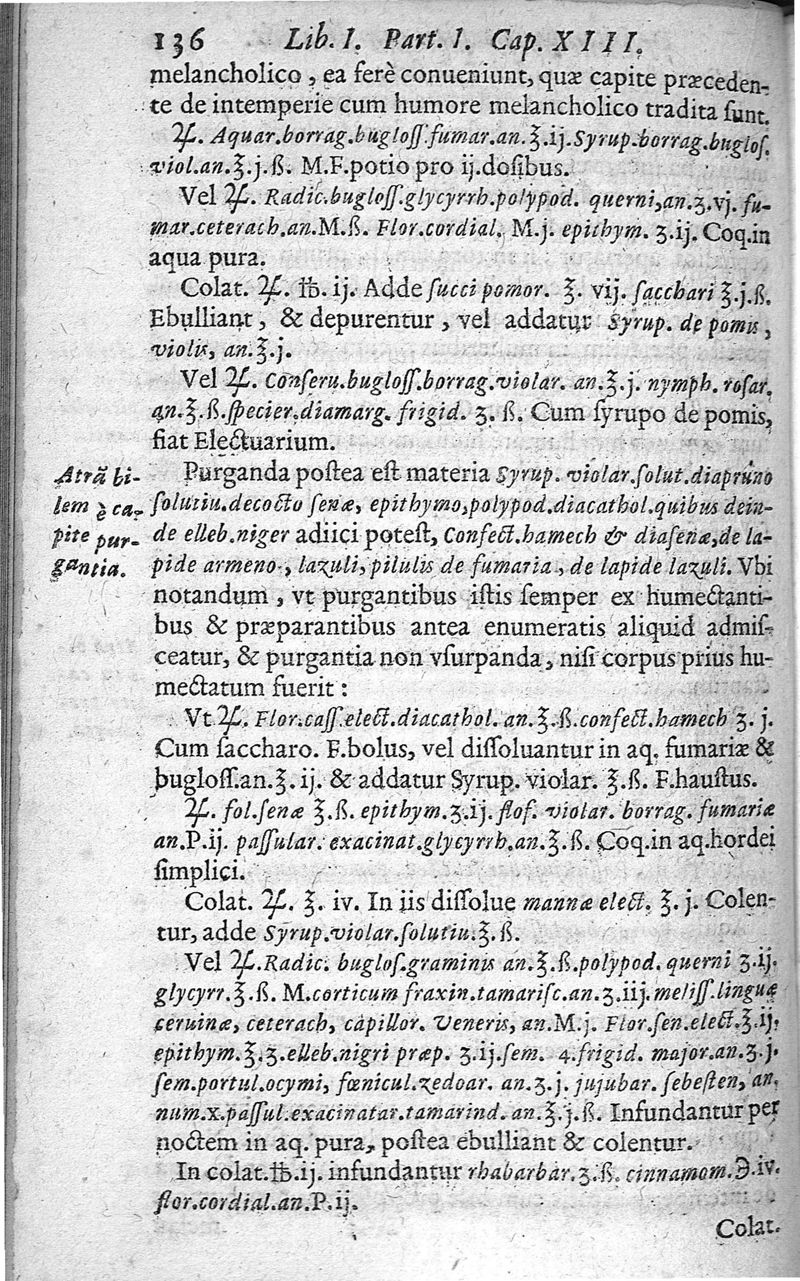 136 Lib. I. Part. I. Cap. XIII.
melancholico, ea ferè conueniunt, quæ capite præceden-
te de intemperie cum humore melancholico tradita ſunt.
℞. Aquar. borrag. bugloſſ. fumar. an. ℥. ij. Syrup. borrag. bugloſ.
viol. an. ℥. j. ß. M. F. potio pro ij. doſibus.
Vel ℞. Radic. bugloſſ. glycyrrh. polypod. querni, an. ʒ. vj. fu-
mar. ceterach. an. M. ß. Flor. cordial. M. j. epithym. ʒ. ij. Coq. in
aqua pura.
Colat. ℞. ℔. ij. Adde ſucci pomor. ℥. vij. ſacchari ℥. j. ß.
Ebulliant, & depurentur, vel addatur Syrup. de pomis,
violis, an. ℥. j.
Vel ℞. Conſeru. bugloſſ. borrag. violar. an. ℥. j. nymph. roſar.
an. ℥. ß. ſpecier. diamarg. frigid. ʒ. ß. Cum ſyrupo de pomis,
fiat Electuarium.
Atrã bi-
lem è ca-
pite pur-
gantia.
Purganda poſtea eſt materia Syrup. violar. ſolut. diapruno
ſolutiu. decocto ſenæ, epithymo, polypod. diacathol. quibus dein-
de elleb. niger adiici poteſt, Confect. hamech & diaſenæ, de la-
pide armeno, lazuli, pilulis de fumaria, de lapide lazuli. Vbi
notandum, vt purgantibus iſtis ſemper ex humectanti-
bus & præparantibus antea enumeratis aliquid admiſ-
ceatur, & purgantia non vſurpanda, niſi corpus prius hu-
mectatum fuerit:
Vt ℞. Flor. caſſ. elect. diacathol. an. ℥. ß. confect. hamech ʒ. j.
Cum ſaccharo. F. bolus, vel diſſoluantur in aq. fumariæ &
bugloſſ. an. ℥. ij. & addatur Syrup. violar. ℥. ß. F. hauſtus.
℞. fol. ſenæ ℥. ß. epithym. ʒ. ij. floſ. violar. borrag. fumariæ
an. P. ij. paſſular. exacinat. glycyrrh. an. ℥. ß. Coq. in aq. hordei
ſimplici.
Colat. ℞. ℥. iv. In iis diſſolue mannæ elect. ℥. j. Colen-
tur, adde Syrup. violar. ſolutiu. ℥. ß.
Vel ℞. Radic. bugloſ. graminis an. ℥. ß. polypod. querni ʒ. ij.
glycyrr. ℥. ß. M. corticum fraxin. tamariſc. an. ʒ. iij. meliſſ. linguæ
ceruinæ, ceterach, capillor. Veneris, an. M. j. Flor. ſen. elect. ℥. ij.
epithym. ℥. ʒ. elleb. nigri præp. ʒ. ij. ſem. 4. frigid. major. an. ʒ. j.
ſem. portul. ocymi, fœnicul. zedoar. an. ʒ. j. jujubar. ſebeſten, an.
num. x. paſſul. exacinatar. tamarind. an. ℥. j. ß. Infundantur per
noctem in aq. pura, poſtea ebulliant & colentur.
In colat. ℔. ij. infundantur rhabarbar. ʒ. ß. cinnamom. ℈. iv.
flor. cordial. an. P. ij.
Colat.